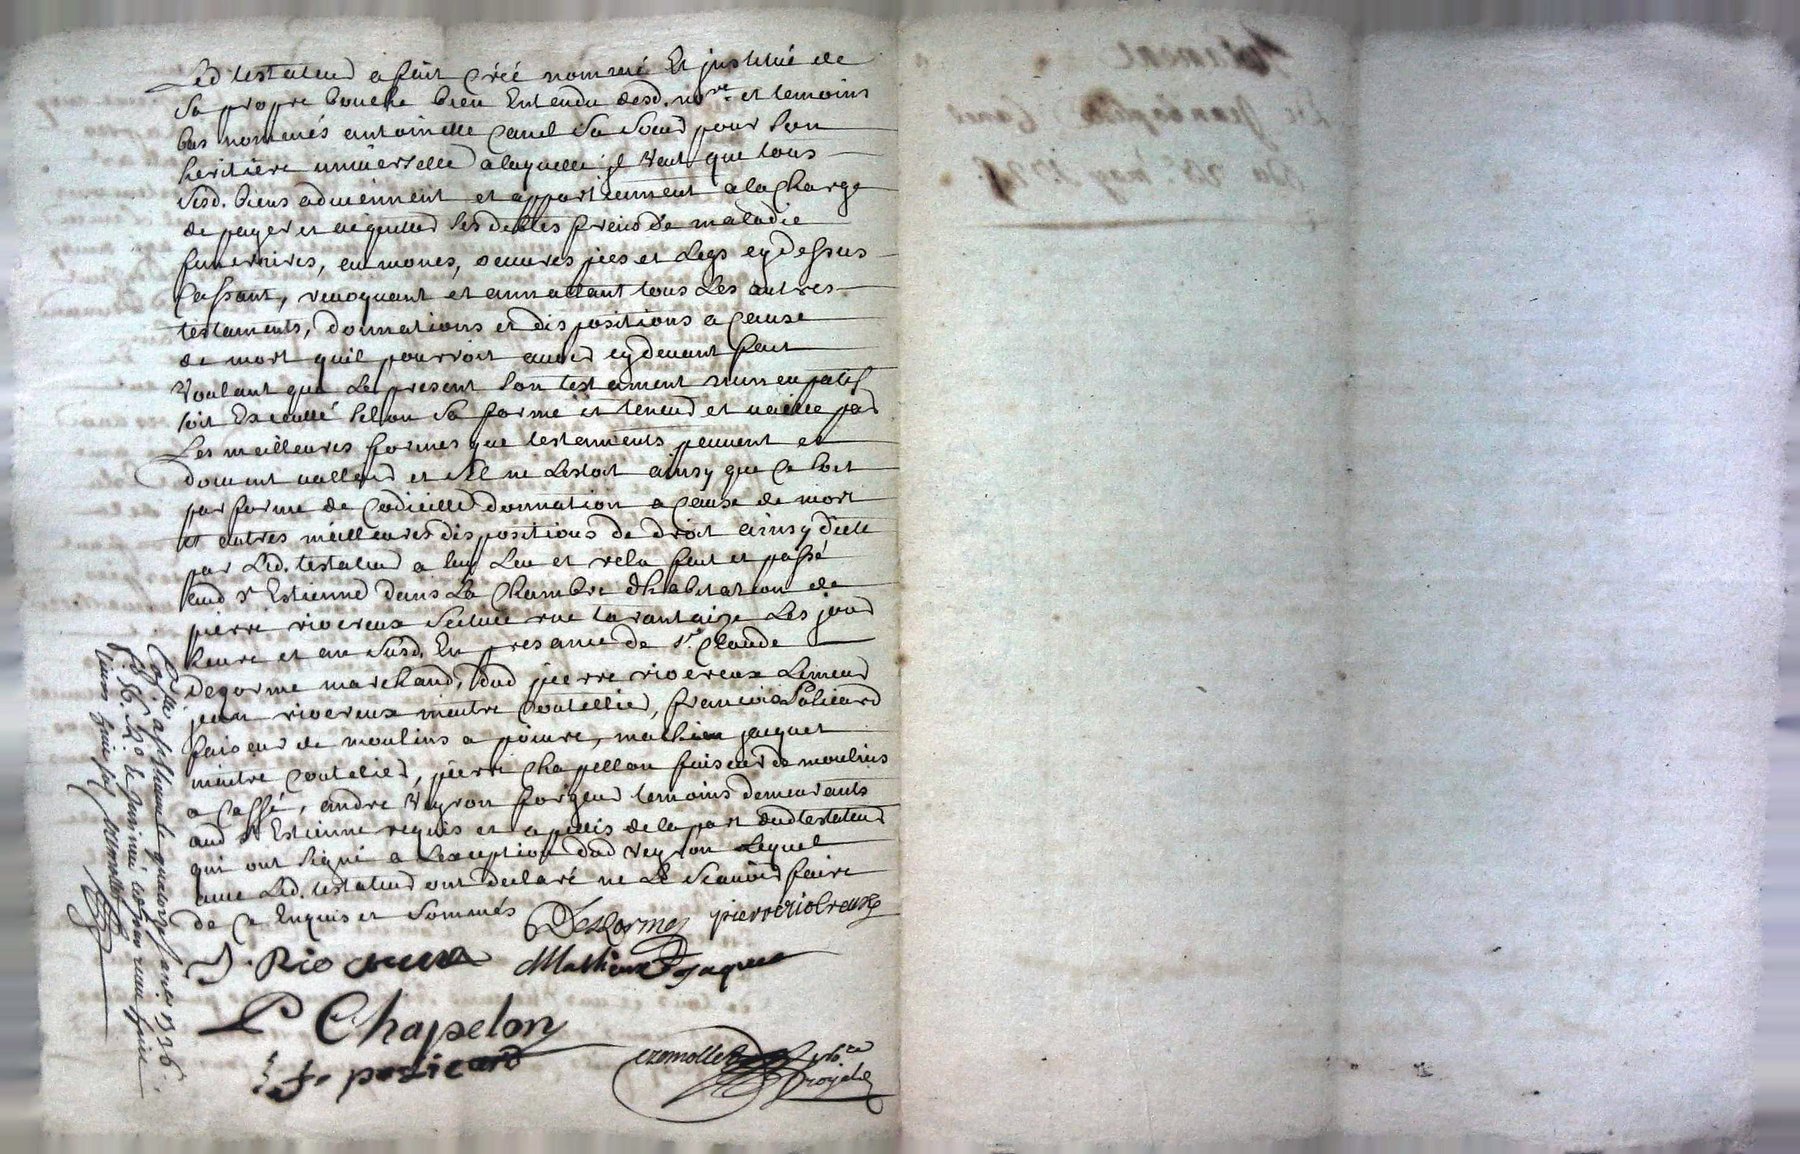 Led testateur a fait créé nommé Et jnstitué de
Sa propre bouche bien Entendu desd. nore et temoins
bas nommés antoinette Canel Sa Soeur pour Son
heritière universelle a laquelle jl Veut que tous
Sesd. biens adviennent et appartiennent a la Charge
de payer et acquitter Ses debtes fraid de maladie
funeraires, aumones, oeuvres pies et Legs cy dessus
Cassant, revoquant et annullant tous Les autres
testaments, donnations et dispositions a Cause
de mort quil pourroit avoir cy devant fait
Voulant que Le present Son testament nuncupatif
soit Executté Selon Sa forme et teneur et vaille par
Les meilleures formes que testaments peuvent et
doivent valloir et sil ne Lestoit ainsy que Ce soit
par forme de Codicille donnation a Cause de mort
et autres meilleures dispositions de droit ainsy dicté
par Led. testateur a luy Leu et relu fait et passé
aud St Estienne dans La Chambre dhabitation de
pierre rivereux Scituée rue tarantaize Les jour
heure et an Susd. En presance de Sr. Claude
Degorme marchand, dud pierre rivereux Limeur
jean rivereux maitre Coutellier, francois Policard
faiseur de moulins a poivre, mathieu jacquet
maitre Coutelier, pierre Chapellon faiseur de moulins
a Caffé, andré Veyron forgeur temoins demeurants
aud St Estienne requis et apellés de la part dud testateur
qui ont Signé a Lexception dud Veyron Lequel
avec Led. testateur ont declaré ne Le Scavoir faire
de Ce Enquis et Sommés
Desgormes pierre riobreux
J. Rio
Mathieu Jaquet
P Chapelon
f. policard
royal
jeanbaptiste Canel
may